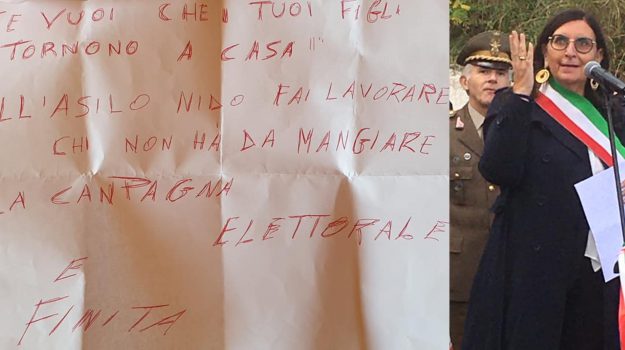 SE VUOI CHE I TUOI FIGLI
TORNONO A CASA"
ALL'ASILO NIDO FAI LAVORARE
CHI NON HA DA MANGIARE
LA CANPAGNA
ELETTORALE
E
FINITA